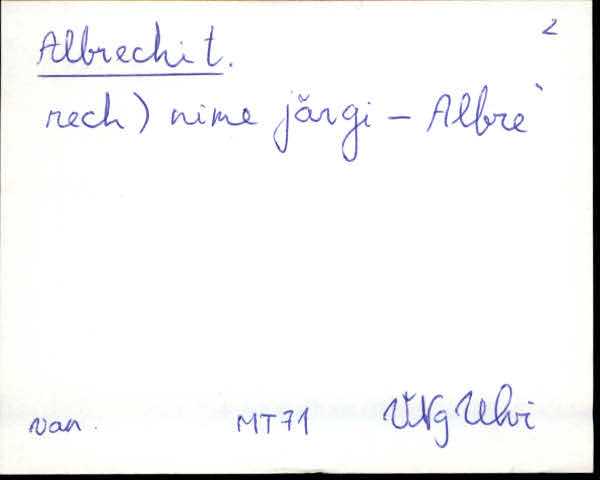 2
Albrechi t.
rech) nime järgi – Albre`
van. MT71 VNg Uhvi